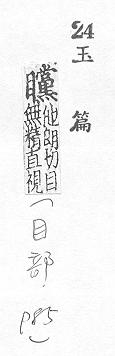 24
玉篇
矘
他朗切目
無精直視
(目部,
P85)